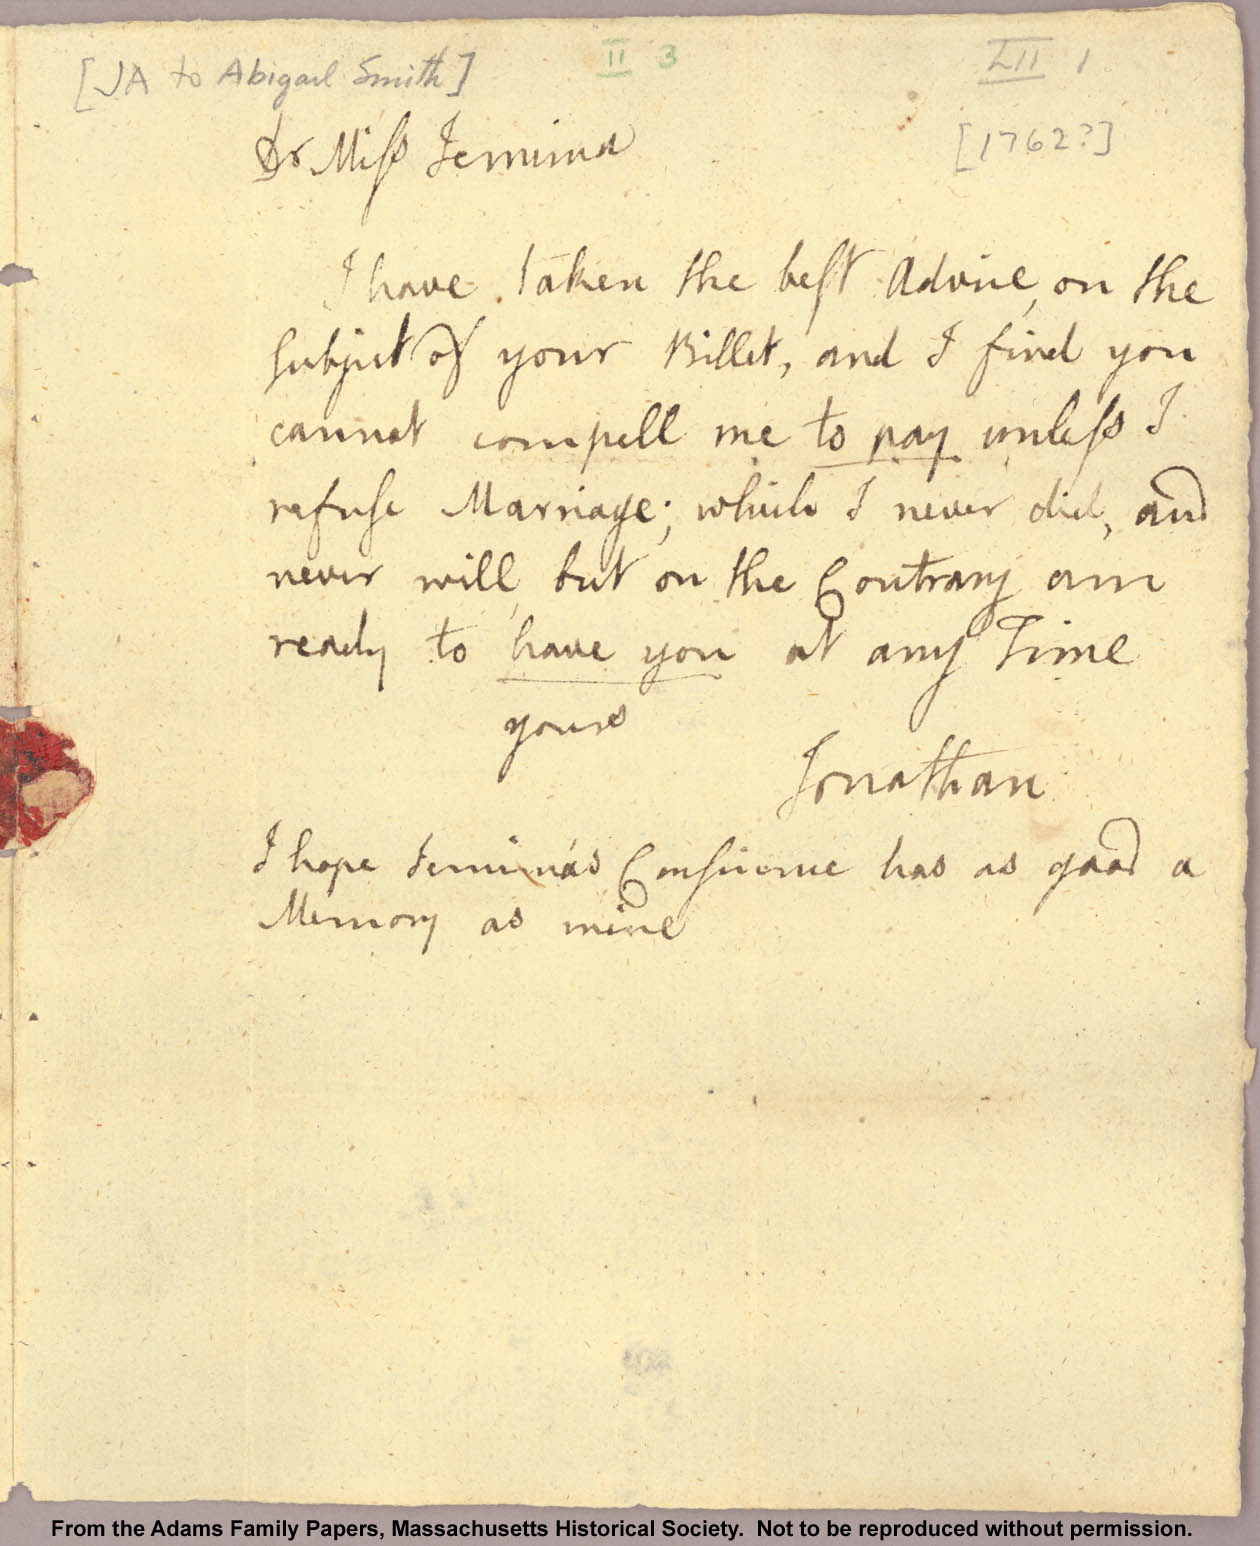 [JA to Abigail Smith]
II 3
LII 1
[1762?]
Dr Miss Jemima
I have taken the best Advice, on the
subject of your Billet, and I find you
cannot compell me to pay unless I
refuse Marriage; which I never did, and
never will, but on the Contrary am
ready to have you at any Time
yours
Jonathan
I hope Jemima's Conscience has as good a
Memory as mine
From the Adams Family Papers, Massachusetts Historical Society. Not to be reproduced without permission.